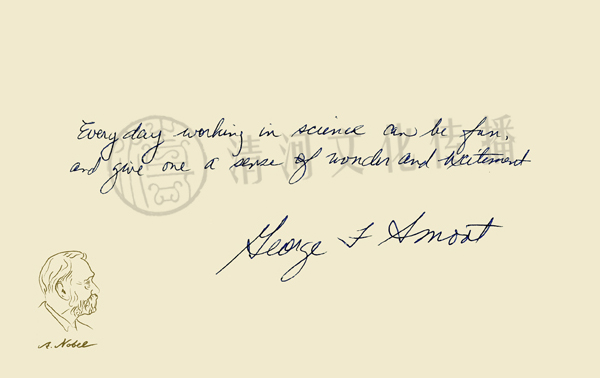 Every day working in science can be fun,
and give one a sense of wonder and excitement
清河文化传播
George F Smoot
A. Nobel